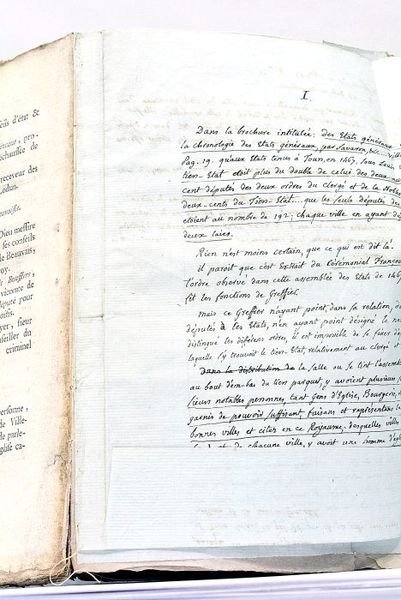 eils d'état &
receveur des
Dieu messire
ses conseils
de Beauvais,
roy.
Boufflers,
vicomte de
éputé pour
yer, sieur
seiller du
criminel
personne,
de Ville-
de parle-
glise ca-
I.
Dans la brochure intitulée: des Etats généraux
la chronologie des Etats généraux, par Savaron,
Pag. 19. qu'aux Etats tenus à Tours, en 1467. sous Louis
tiers-Etat étoit plus du double de celui des deux
cent députés des deux ordres du clergé et de la Noble
deux-cents du Tiers-Etat.... que les seuls députés de
étoient au nombre de 192; chaque ville en ayant dé
deux laics.
Rien n'est moins certain, que ce qui est dit là.
il paroit que c'est Extrait du Cérémonial François
l'ordre observé dans cette assemblée des Etats de 146
fit les fonctions de Greffier.
mais ce Greffier n'ayant point, dans sa relation, d
députés à les Etats, n'en ayant point désigné le no
distingué les différens ordres, il est impossible de
laquelle s'y trouvoit le tiers-Etat, relativement au clergé et
Dans la distribution de la salle ou se tint l'assemb
au bout d'en-bas du tiers parquet, y avoient plusieurs
sieurs notables personnes, tant gens d'Eglise, Bourgeois,
garnis de pouvoir suffisant, faisans et représentans la
bonnes villes et cités en ce Royaume. desquelles villes
et de chacune ville, y avoit un homme d'égl